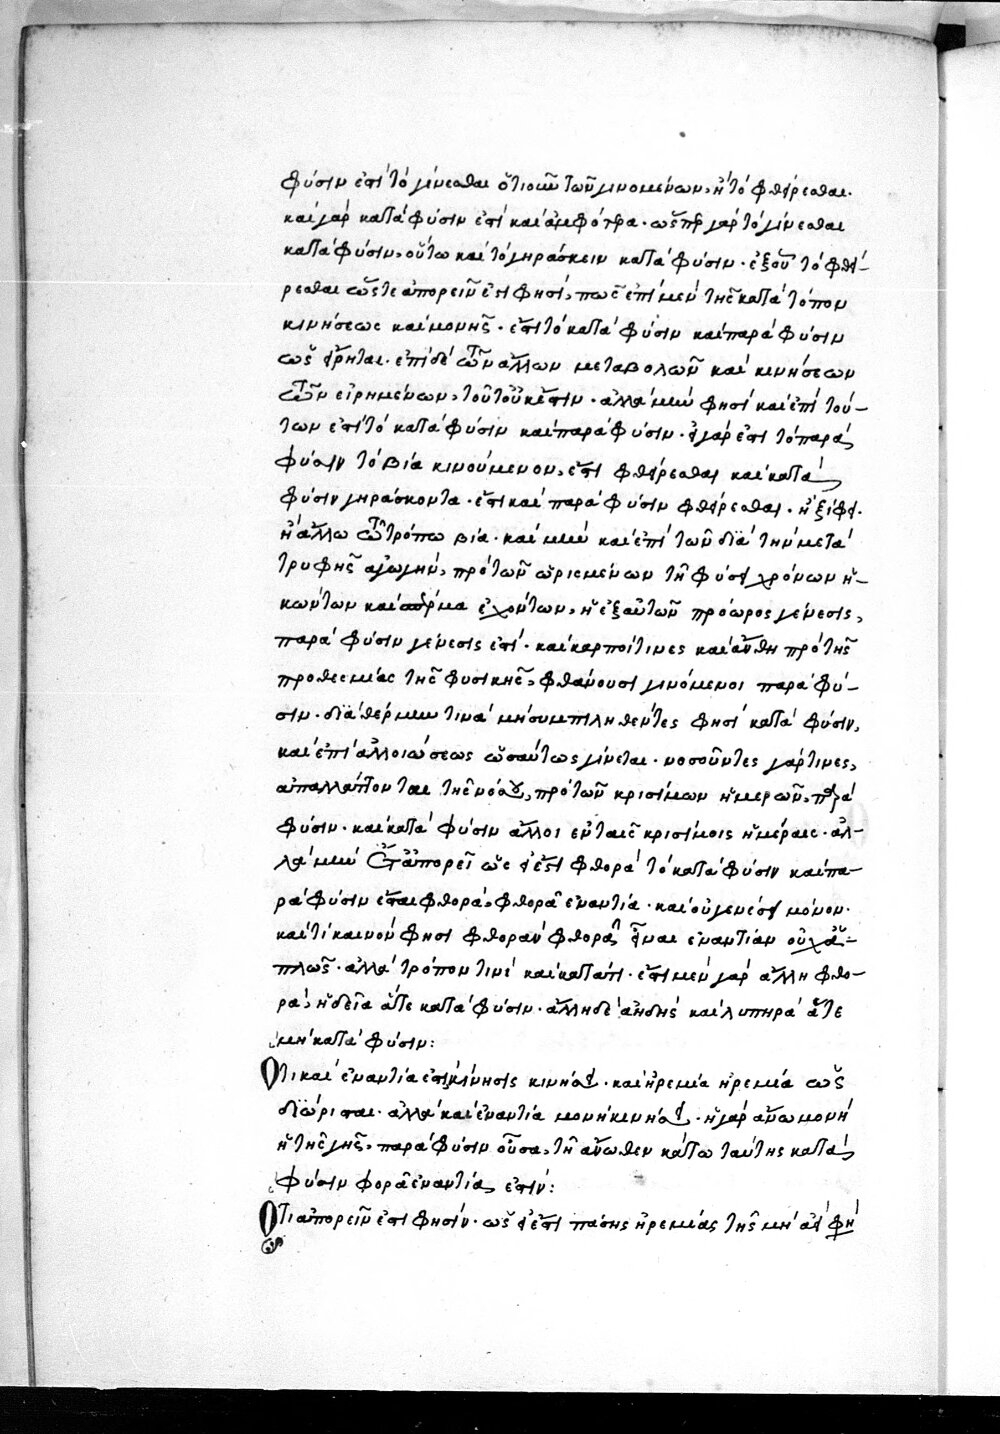 φύσιν ἐστὶ τὸ γίνεσθαι ὁτιοῦν τῶν γινομένων, ἢ τὸ φθείρεσθαι.
καὶ γὰρ κατὰ φύσιν ἐστὶ καὶ ἀμφότερα. ὥσπερ γὰρ τὸ γίνεσθαι
κατὰ φύσιν, οὕτω καὶ τὸ γηράσκειν κατὰ φύσιν. ἐξ οὗ τὸ φθεί-
ρεσθαι ὥστε ἀπορεῖν ἔστι φησὶ, πῶς ἐπὶ μὲν τῆς κατὰ τόπον
κινήσεως καὶ μονῆς. ἔστι τὸ κατὰ φύσιν καὶ παρὰ φύσιν
ὡς εἴρηται. ἐπὶ δὲ τῶν ἄλλων μεταβολῶν καὶ κινήσεων
τῶν εἰρημένων, τοῦτο οὐκ ἔστιν. ἀλλὰ μὴν φησὶ καὶ ἐπὶ τού-
των ἐστὶ τὸ κατὰ φύσιν καὶ παρὰ φύσιν. εἰ γάρ ἐστι τὸ παρὰ
φύσιν τὸ βία κινούμενον, ἔστι φθείρεσθαι καὶ κατὰ
φύσιν γηράσκοντα. ἔστι καὶ παρὰ φύσιν φθείρεσθαι. ἢ ξίφει.
ἢ ἄλλω τω τρόπω βία. καὶ μὴν καὶ ἐπὶ τῶν διὰ τὴν μετὰ
τρυφῆς ἀγωγὴν, πρὸ τῶν ὡρισμένων τῇ φύσει χρόνων ἡ-
κώντων καὶ σπέρμα ἐχόντων, ἡ ἐξ αὐτῶν πρόωρος γένεσις,
παρὰ φύσιν γένεσις ἐστί. καὶ καρποί τινες καὶ ἄνθη πρὸ τῆς
προθεσμίας τῆς φυσικῆς, φθάνουσι γινόμενοι παρὰ φύ-
σιν. διὰ θέρμην τινὰ μὴ συμπιληθέντες φησὶ κατὰ φύσιν,
καὶ ἐπὶ ἀλλοιώσεως ὡσαύτως γίνεται. νοσοῦντες γάρ τινες,
ἀπαλλάττονται τῆς νόσου, πρὸ τῶν κρισίμων ἡμερῶν, παρὰ
φύσιν. καὶ κατὰ φύσιν ἄλλοι ἐν ταῖς κρισίμοις ἡμέραις. ἀλ-
λὰ μὴν ἀπορεῖ ὡς εἰ ἔστι φθορὰ τὸ κατὰ φύσιν καὶ πα-
ρὰ φύσιν ἔσται φθορὰ, φθορᾶ ἐναντία. καὶ οὐ γενέσει μόνον.
καὶ τί καινόν φησι φθορὰν φθορᾶ εἶναι ἐναντίαν οὐχ ἁ-
πλῶς. ἀλλὰ τρόπον τινὰ καὶ κατά τι. ἔστι μὲν γὰρ ἄλλη φθο-
ρὰ, ἡδεῖα ἅτε κατὰ φύσιν. ἄλλη δὲ ἀηδὴς καὶ λυπηρὰ ἅτε
μὴ κατὰ φύσιν:
Ὅτι καὶ ἐναντία ἐστὶ κίνησις κινήσει. καὶ ἠρεμία ἠρεμία ὡς
διώρισται. ἀλλὰ καὶ ἐναντία μονὴ κινήσει. ἡ γὰρ ἄνω μονὴ
ἡ τῆς γῆς, παρὰ φύσιν οὖσα, τῆ ἄνωθεν κάτω ταύτης κατὰ
φύσιν φορᾶ ἐναντία ἐστίν:
Ὅτι ἀπορεῖν ἔστι φησὶν. ὡς εἰ ἔστι πάσης ἠρεμίας τῆς μὴ ἀεὶ φη